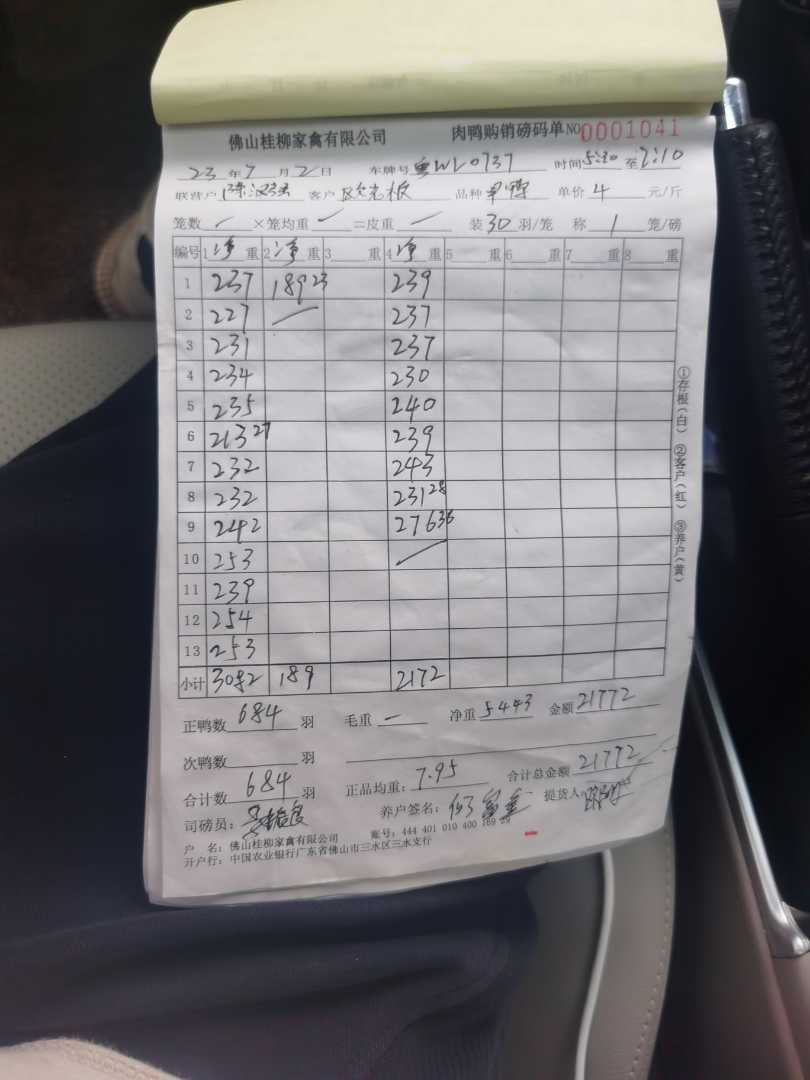 佛山桂柳家禽有限公司 肉鸭购销磅码单 NO 0001041
23 年 7 月 2 日 车牌号 WL0737 时间 5:30 至 7:10
联营户 客户 老板 品种 单价 4 元/斤
笼数 / ×笼均重 / =皮重 / 装 30 羽/笼 称 1 笼/磅
编号 1 净 重 2 净 重 3 重 4 净 重 5 重 6 重 7 重 8 重
1 237 189 23 239
2 227 / 237
3 231 237
4 234 230
5 235 240
6 213 27 239
7 232 243
8 232 231 28
9 242 276 36
10 253 /
11 239
12 254
13 253
小计 3082 189 2172
正鸭数 684 羽 毛重 — 净重 5443 金额 21772
次鸭数 羽
合计数 684 羽 正品均重: 7.95 合计总金额 21772
司磅员: 养户签名: 提货人:
户 名: 佛山桂柳家禽有限公司 账号: 444 401 010 400 169 29
开户行: 中国农业银行广东省佛山市三水区三水支行
①存根(白) ②客户(红) ③养户(黄)